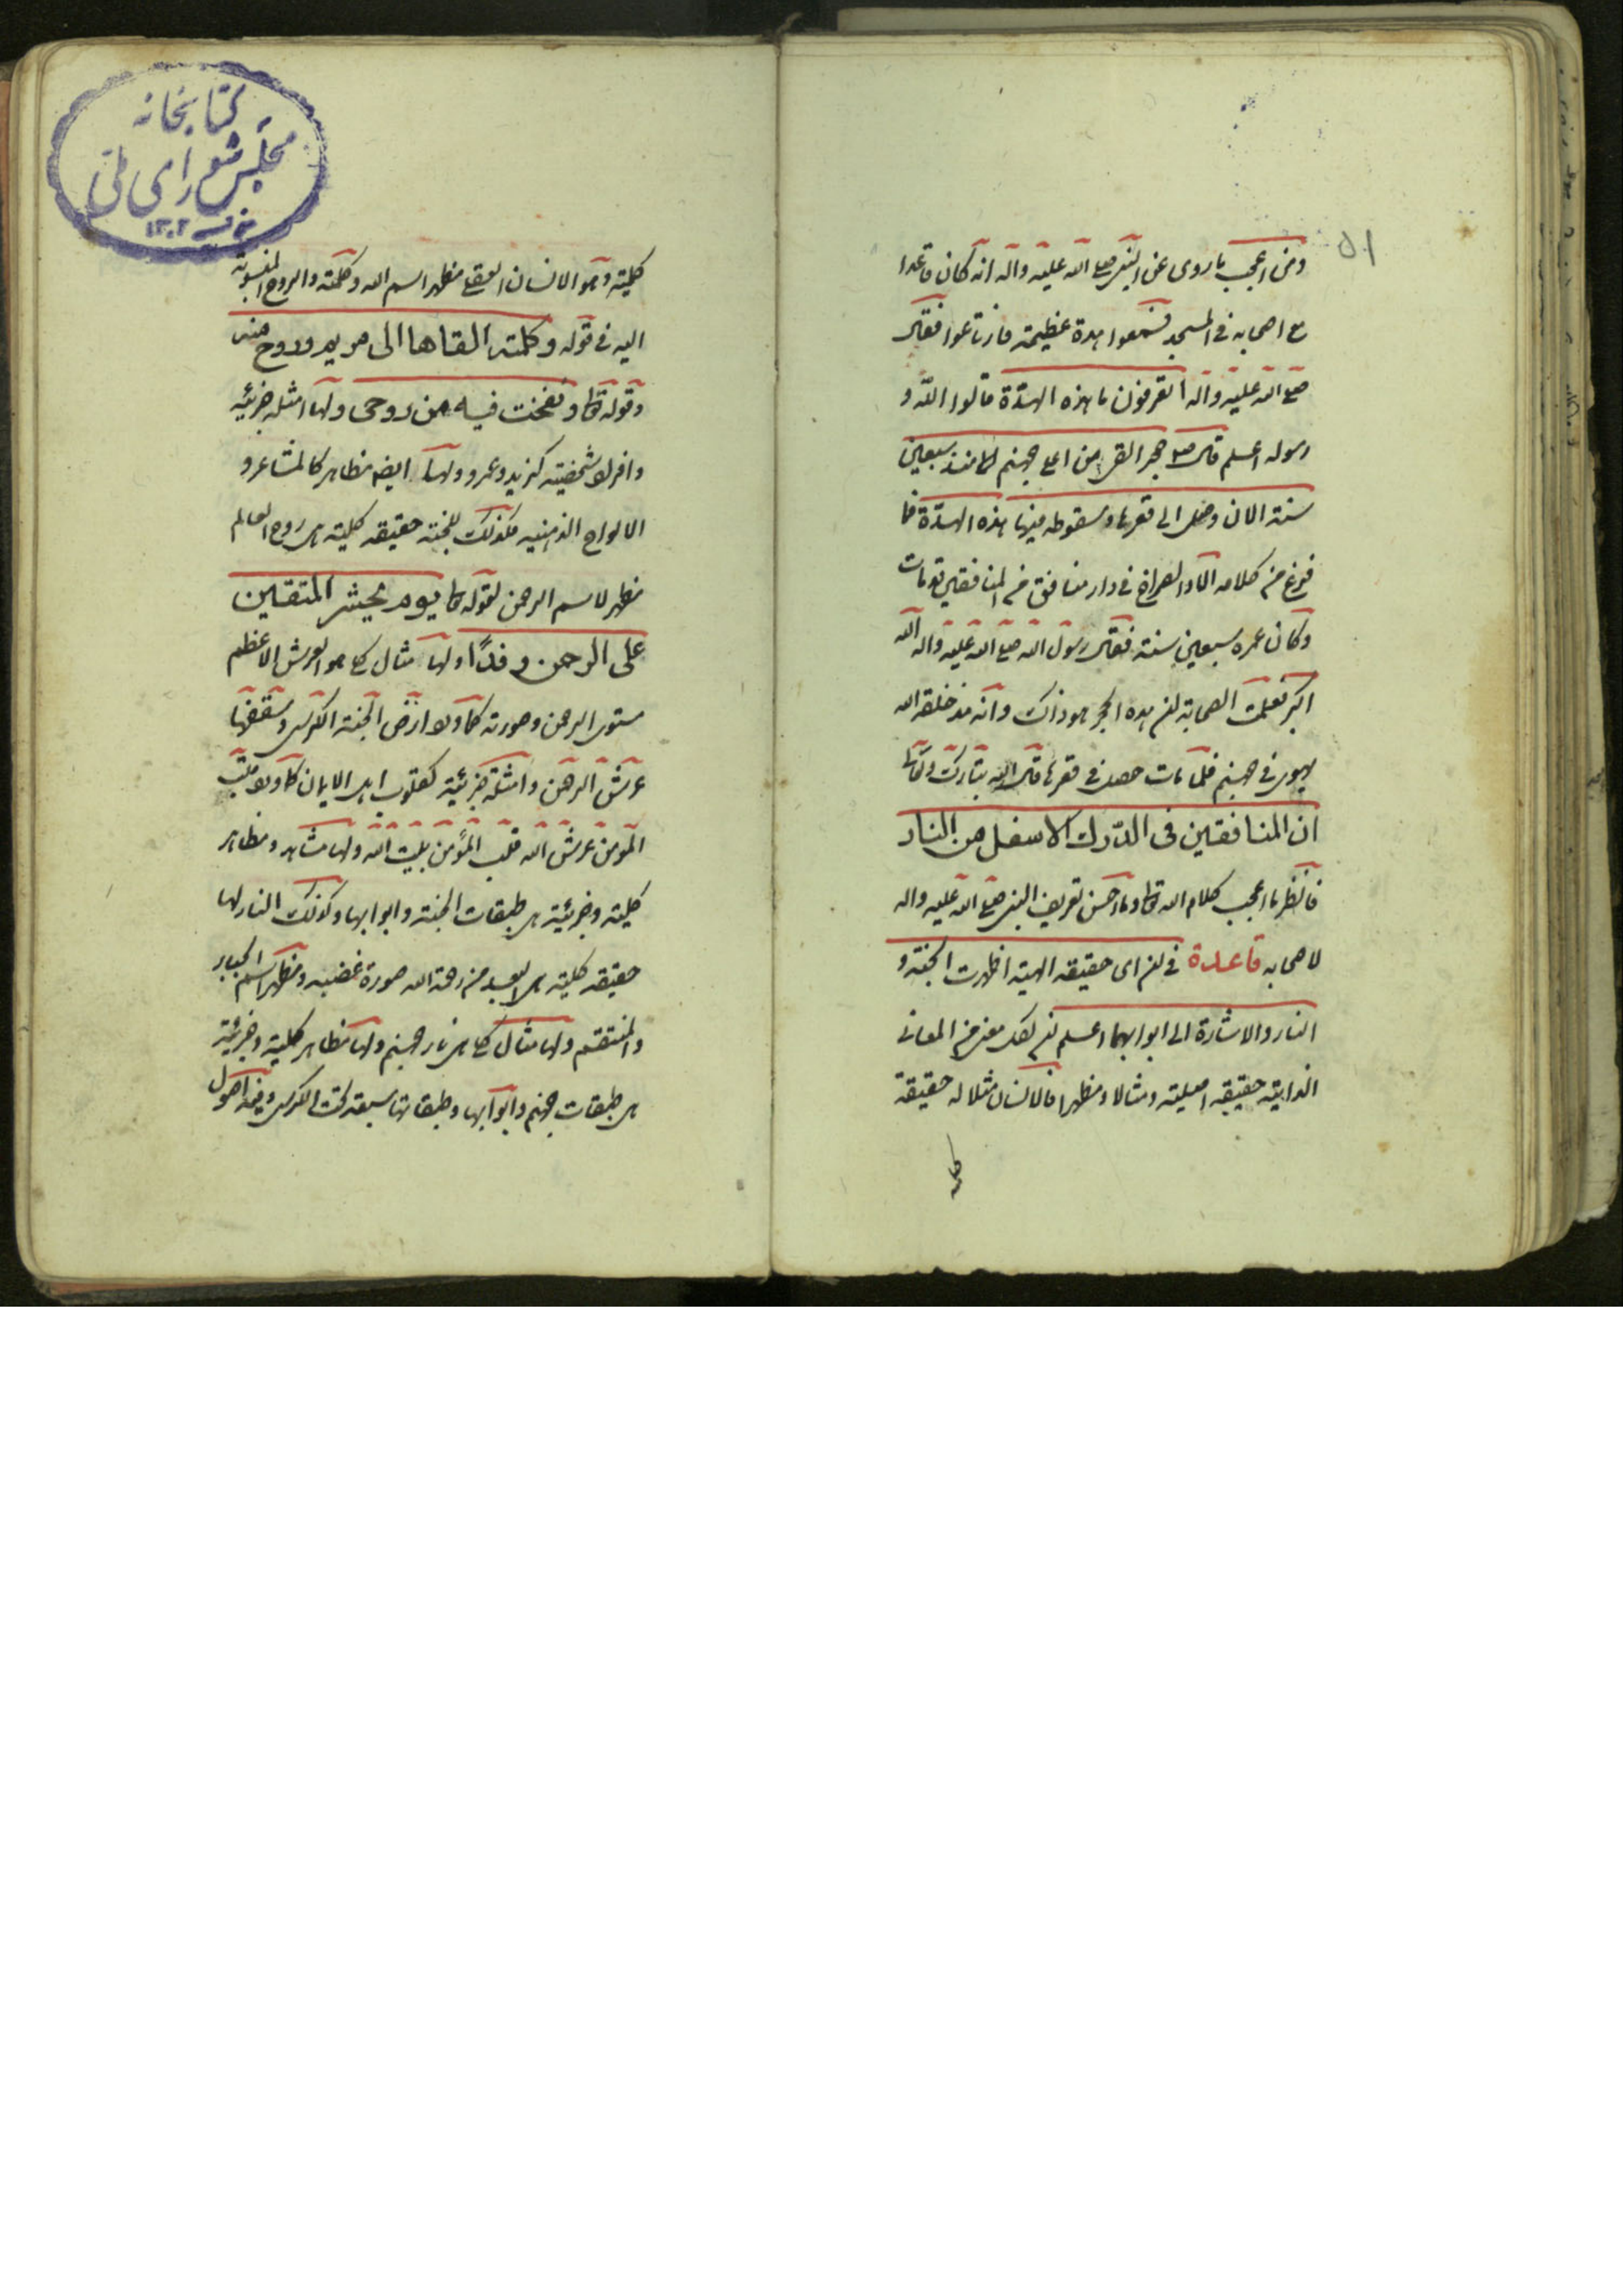 ٥١
ومن اعجب ما روى عن النبى صلى الله عليه واله انه كان قاعدا
مع اصحابه فى المسجد فسمعوا هدة عظيمة فارتاعوا فقال
صلى الله عليه واله اتعرفون ما هذه الهدّة قالوا الله و
رسوله اعلم قال حجر القى من اعلى جهنم منذ سبعين
سنة الان وصل الى قعرها وسقوطه فيها هذه الهدّة فما
فرغ من كلامه الا والصراخ فى دار منافق من المنافقين قد مات
وكان عمره سبعين سنة فقال رسول الله صلى الله عليه واله الله
اكبر فعلمت الصحابة ان هذا الحجر هو ذاك وانه مذ خلقه الله
يهوى فى جهنم فلما مات حصل فى قعرها قال الله تبارك وتعالى
ان المنافقين فى الدّرك الاسفل من النار
فانظر ما اعجب كلام الله تعالى وما احسن تعريف النبى صلى الله عليه واله
لاصحابه قاعدة فى ان اى حقيقه الهية اظهرت الجنة و
النار والاشارة الى ابوابهما اعلم ان لكل معنى من المعانى
الذاتية حقيقة اصلية ومثالا ومظهرا فالانسان مثلا له حقيقة
كلية
كتابخانه
مجلس شوراى ملى
١٣٠٢
كلية وهو الانسان العقلى مظهر اسم الله وكلمته والروح المنسوبة
اليه فى قوله وكلمته القاها الى مريم وروح منه
وقوله تعالى ونفخت فيه من روحى ولها امثلة جزئية
وافراد شخصية كزيد وعمرو ولها ايضا مظاهر كالمشاعر و
الالواح الذهنية فكذلك للجنة حقيقه كلية هى روح العالم
مظهر لاسم الرحمن لقوله تعالى يوم نحشر المتقين
على الرحمن وفدًا ولها مثال كلى هو العرش الاعظم
مستوى الرحمن وصورته كما ورد ارض الجنة الكرسى وسقفها
عرش الرحمن وامثلة جزئية كقلوب اهل الايمان كما ورد قلب
المؤمن عرش الله قلب المؤمن بيت الله ولها مشاهد ومظاهر
كلية وجزئية هى طبقات الجنة وابوابها وكذلك النار لها
حقيقة كلية هى البعد من رحمة الله صورة غضبه ومظهر اسم الجبار
والمنتقم ولها مثال كلى هى نار جهنم ولها مظاهر كلية وجزئية
هى طبقات جهنم وابوابها وطبقاتها سبعة تحت الكرسى وفيه اصول